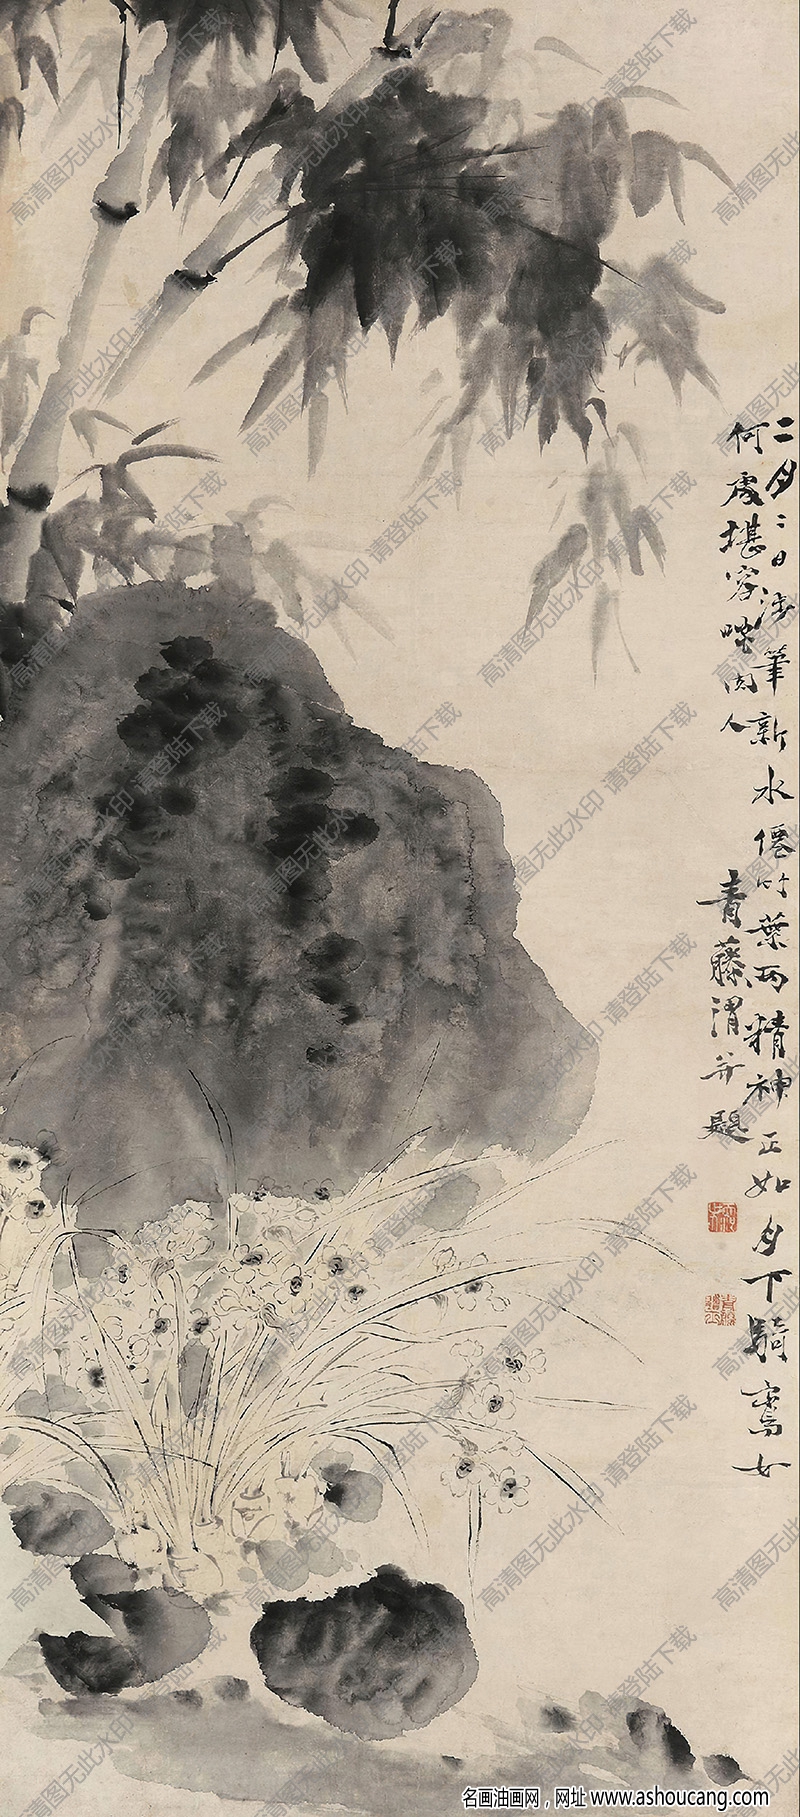 二月二日涉筆新水僊竹葉兩精神正如月下騎鸞女
何處堪容啖肉人
青藤渭并題
高清图无此水印 请登陆下载
名画油画网，网址 www.ashoucang.com